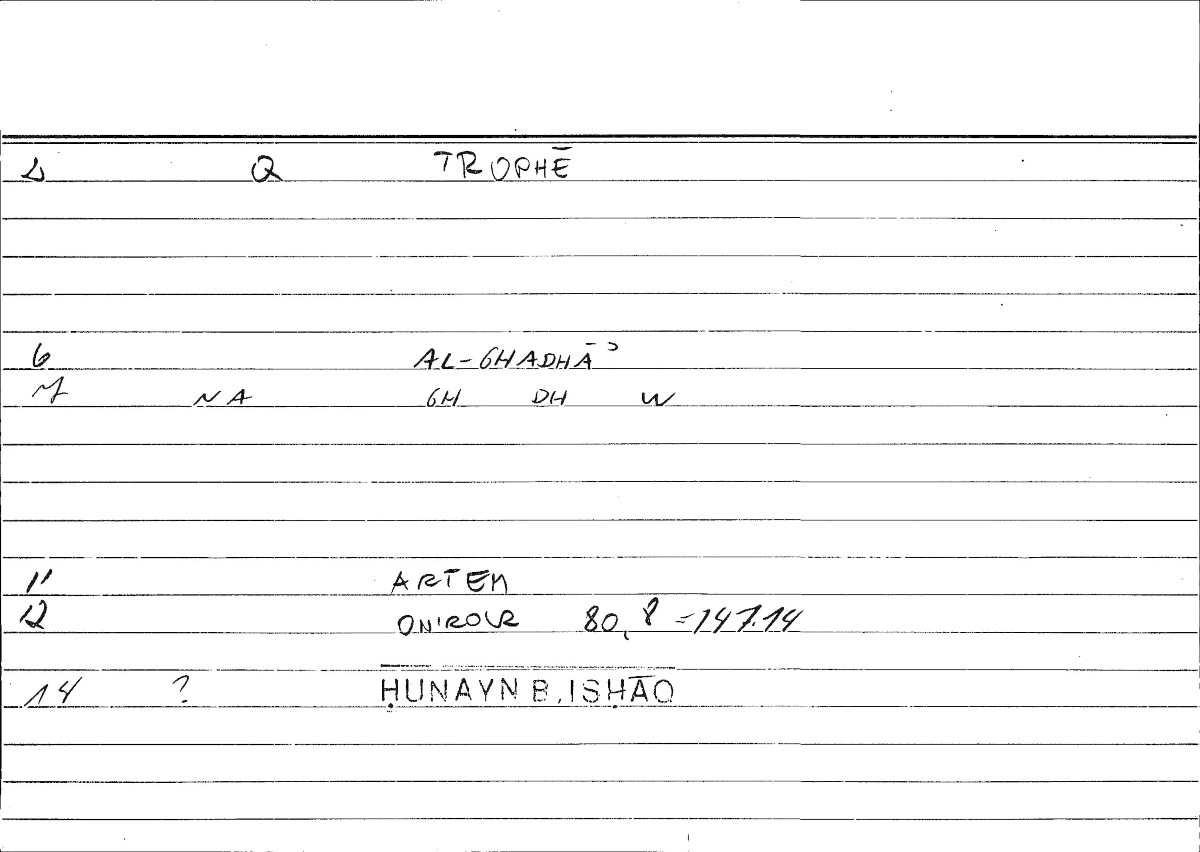 1 Q TROPHĒ
6 AL-GHADHĀʾ
7 NA GH DH W
11 ARTEM
12 ONIROCR 80,8 =147.14
14 ? ḤUNAYN B, ISḤĀQ